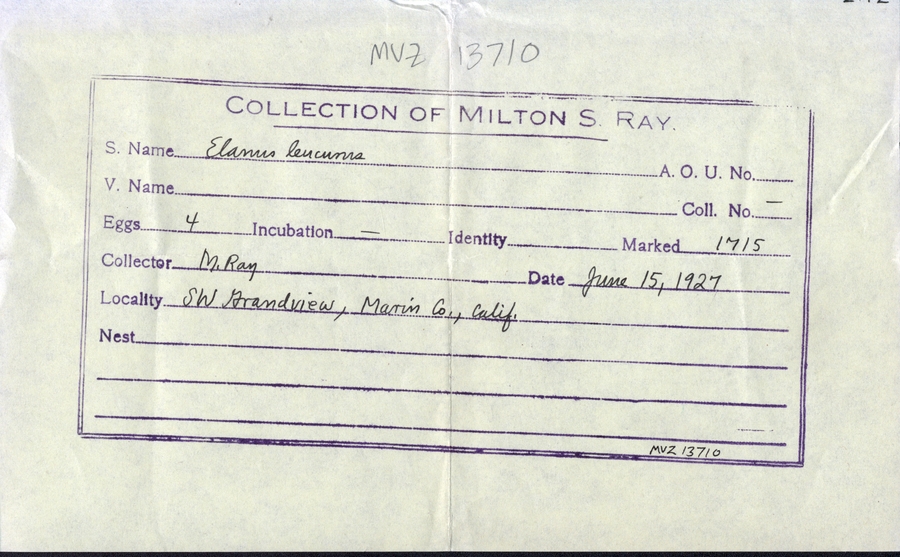 MVZ 13710
COLLECTION OF MILTON S. RAY.
S. Name Elanus leucurus A. O. U. No.
V. Name Coll. No. —
Eggs 4 Incubation — Identity Marked 1715
Collector M. Ray Date June 15, 1927
Locality SW Grandview, Marin Co., Calif.
Nest
MVZ 13710